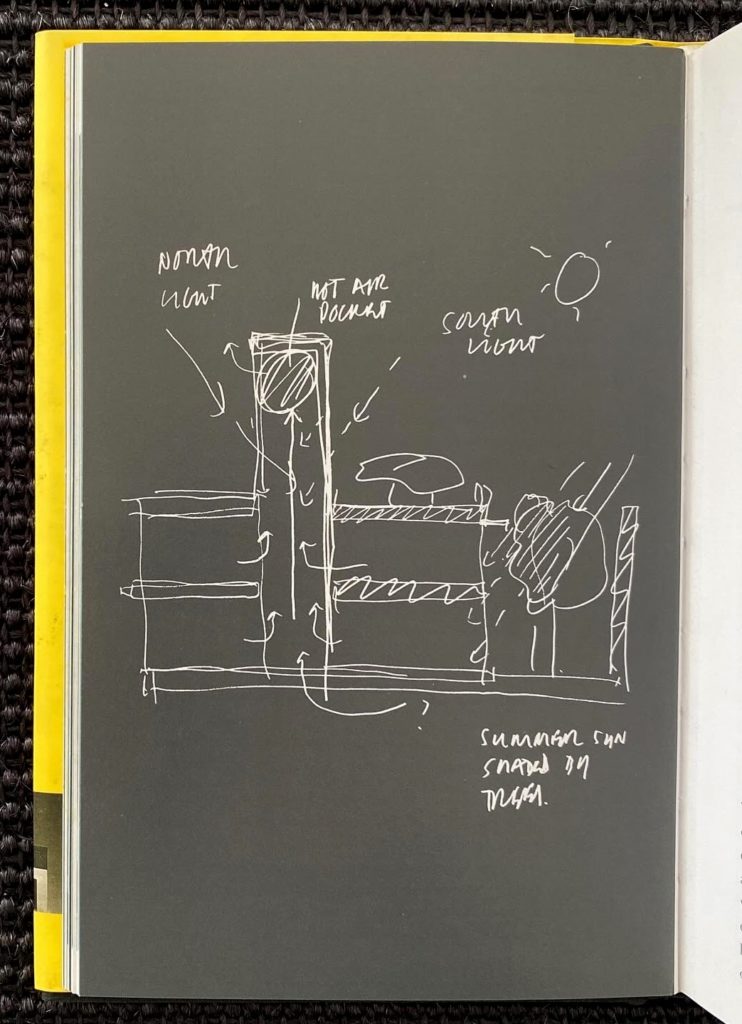 NORTH
LIGHT
HOT AIR
POCKET
SOUTH
LIGHT
?
SUMMER SUN
SHADED BY
TREES.